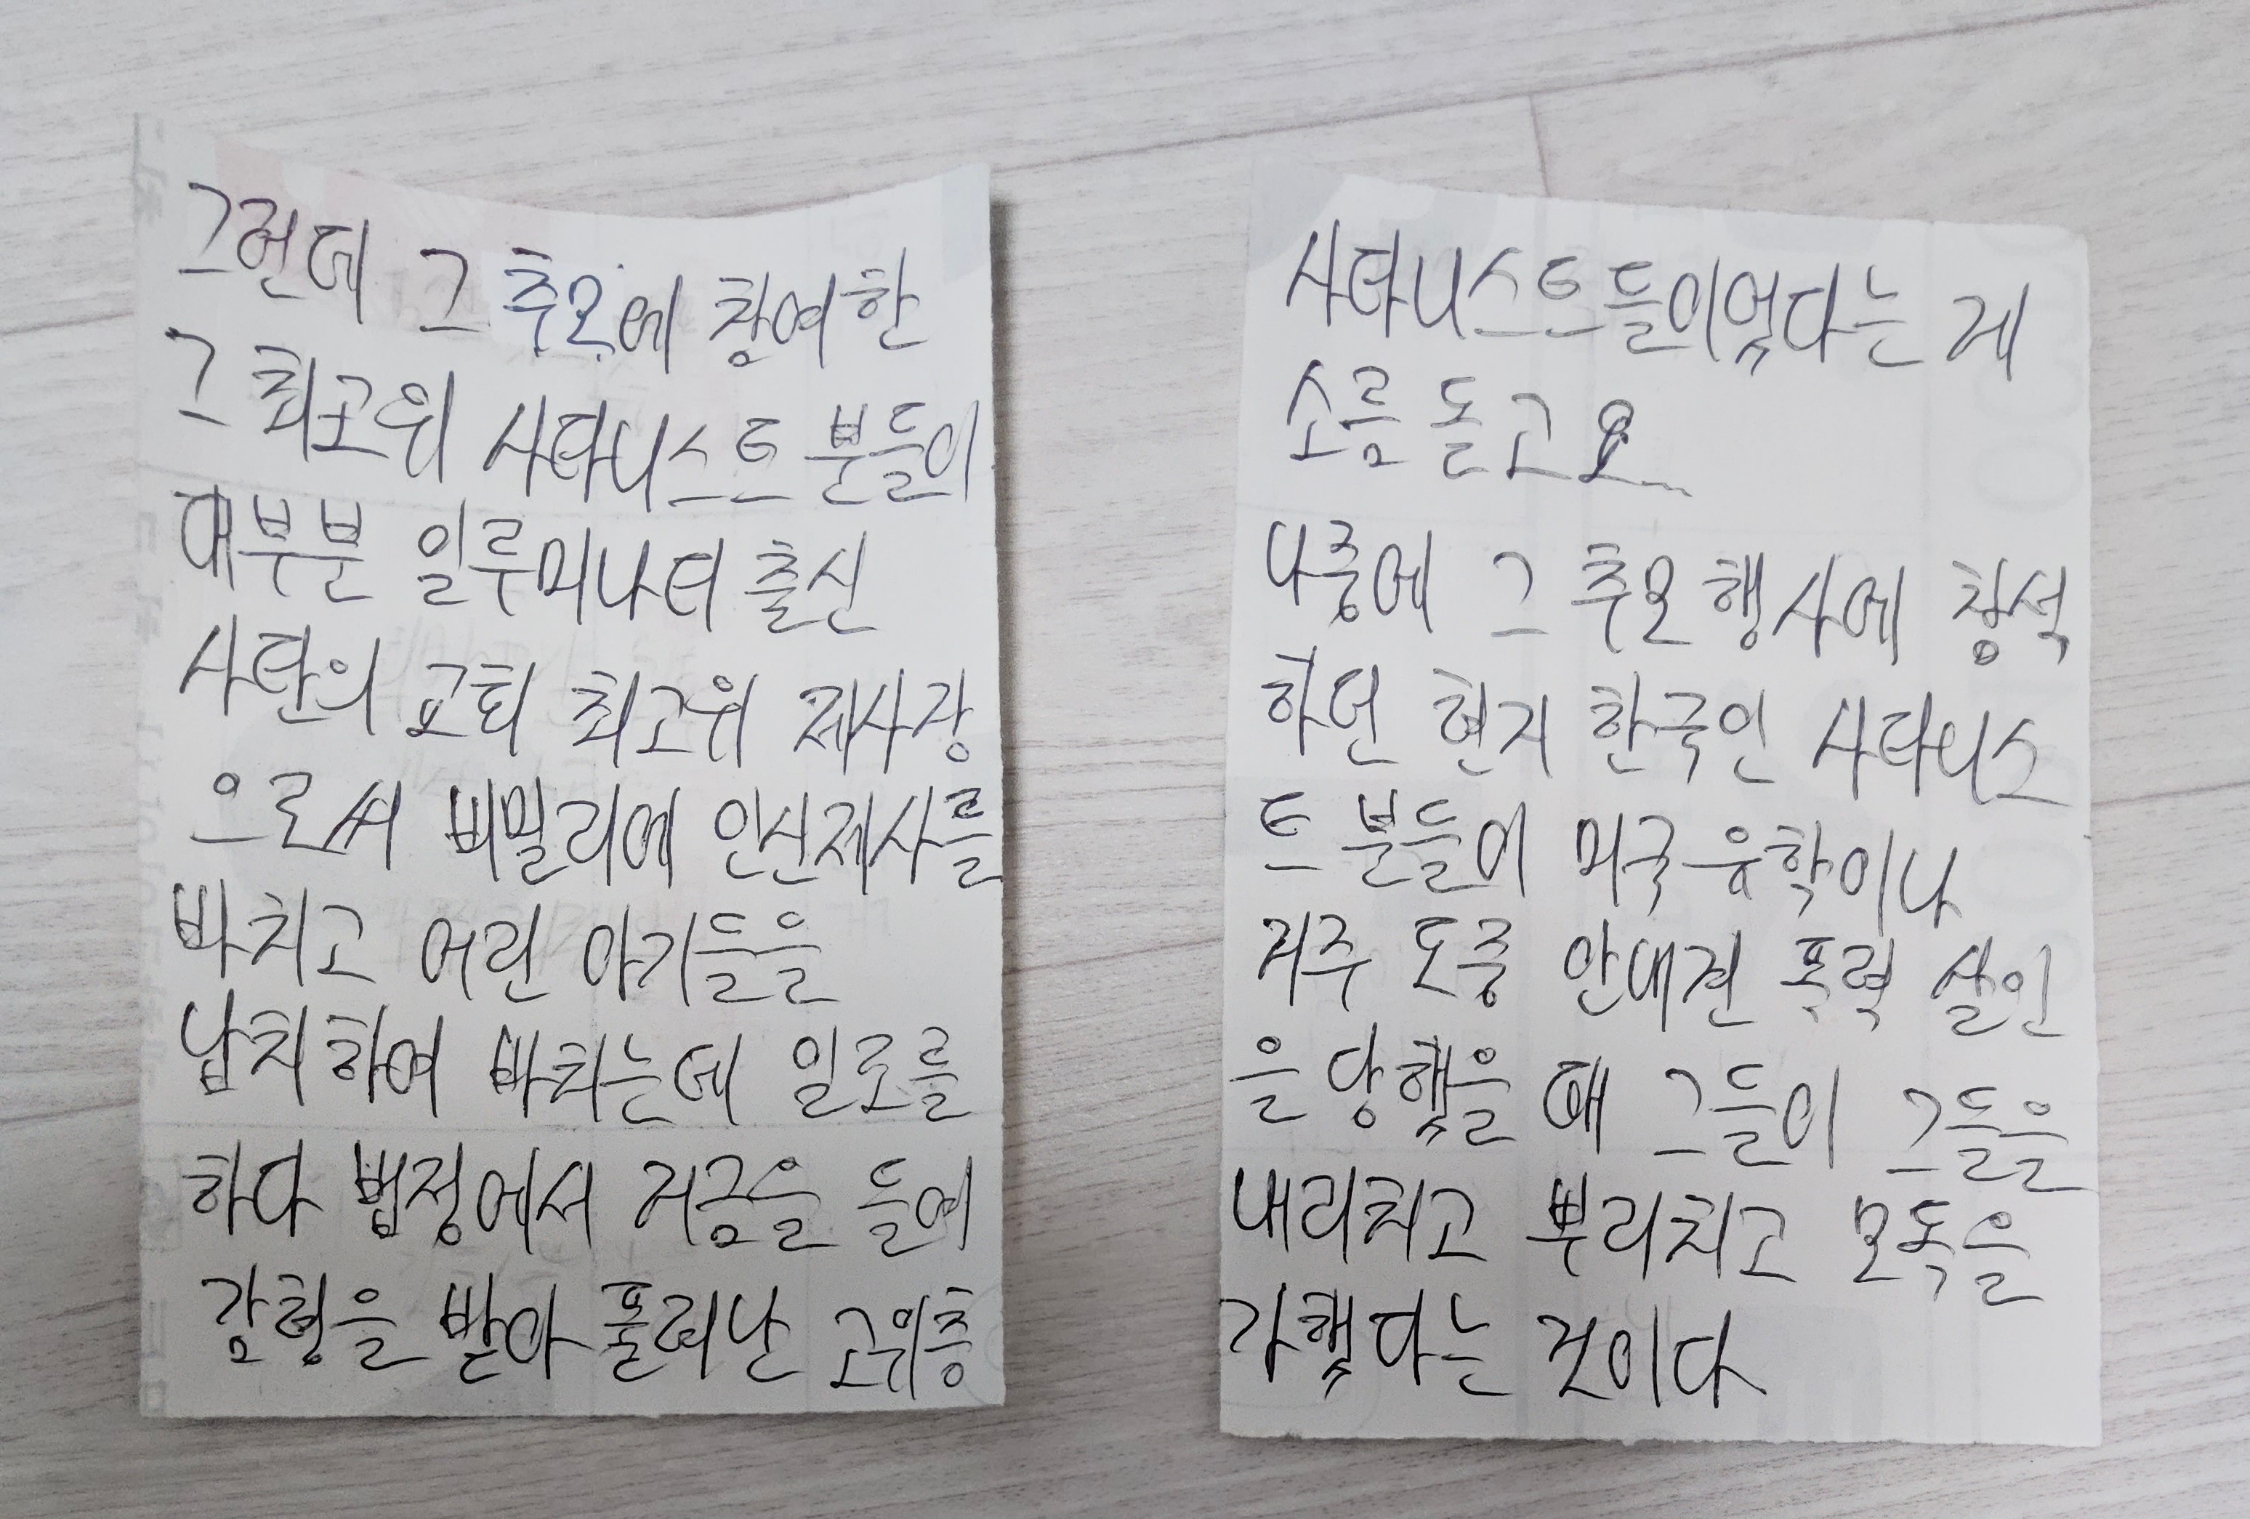 그런데 그 추모에 참여한
그 최고위 사타니스트 분들이
대부분 일루미나티 출신
사탄의 교회 최고위 제사장
으로써 비밀리에 인신제사를
바치고 어린 아기들을
납치하여 바치는데 일조를
하다 법정에서 거금을 들여
감형을 받아 풀려난 고위층
사타니스트들이었다는 게
소름 돋고요
나중에 그 추모행사에 참석
하던 현지 한국인 사타니스
트 분들이 미국유학이나
거주 도중 안대견 폭력 살인
을 당했을 때 그들이 그들을
내리치고 뿌리치고 모독을
가했다는 것이다